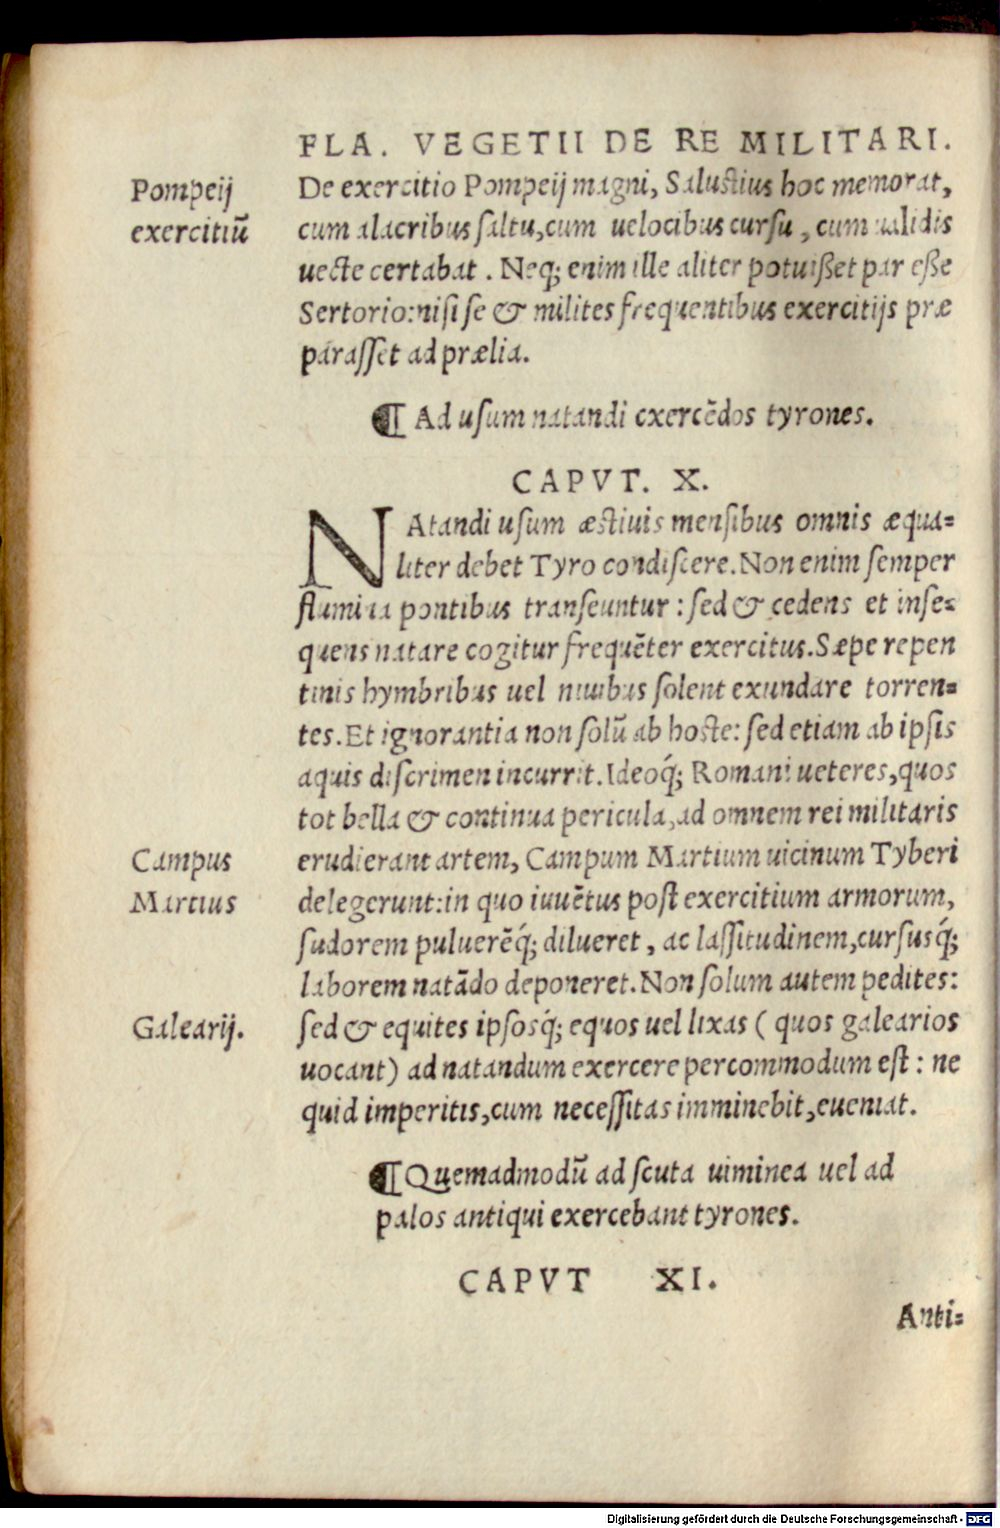 FLA. VEGETII DE RE MILITARI.
Pompeij
exercitiū
De exercitio Pompeij magni, Salustius hoc memorat,
cum alacribus saltu,cum uelocibus cursu, cum ualidis
uecte certabat. Neq; enim ille aliter potuißet par eße
Sertorio:nisi se & milites frequentibus exercitijs præ
parasset ad prælia.
¶ Ad usum natandi exercēdos tyrones.
CAPVT. X.
NAtandi usum æstiuis mensibus omnis æqua=
liter debet Tyro condiscere. Non enim semper
flumina pontibus transeuntur: sed & cedens et inse=
quens natare cogitur frequēter exercitus. Sæpe repen
tinis hymbribus uel niuibus solent exundare torren=
tes. Et ignorantia non solū ab hoste: sed etiam ab ipsis
aquis discrimen incurrit. Ideoq́; Romani ueteres, quos
tot bella & continua pericula, ad omnem rei militaris
Campus
Martius
erudierant artem, Campum Martium uicinum Tyberi
delegerunt:in quo iuuētus post exercitium armorum,
sudorem puluerēq́; dilueret, ac lassitudinem,cursusq́;
laborem natādo deponeret. Non solum autem pedites:
Galearij.
sed & equites ipsosq́; equos uel lixas ( quos galearios
uocant) ad natandum exercere percommodum est: ne
quid imperitis,cum necessitas imminebit,eueniat.
¶ Quemadmodū ad scuta uiminea uel ad
palos antiqui exercebant tyrones.
CAPVT XI.
Anti=
Digitalisierung gefördert durch die Deutsche Forschungsgemeinschaft - DFG